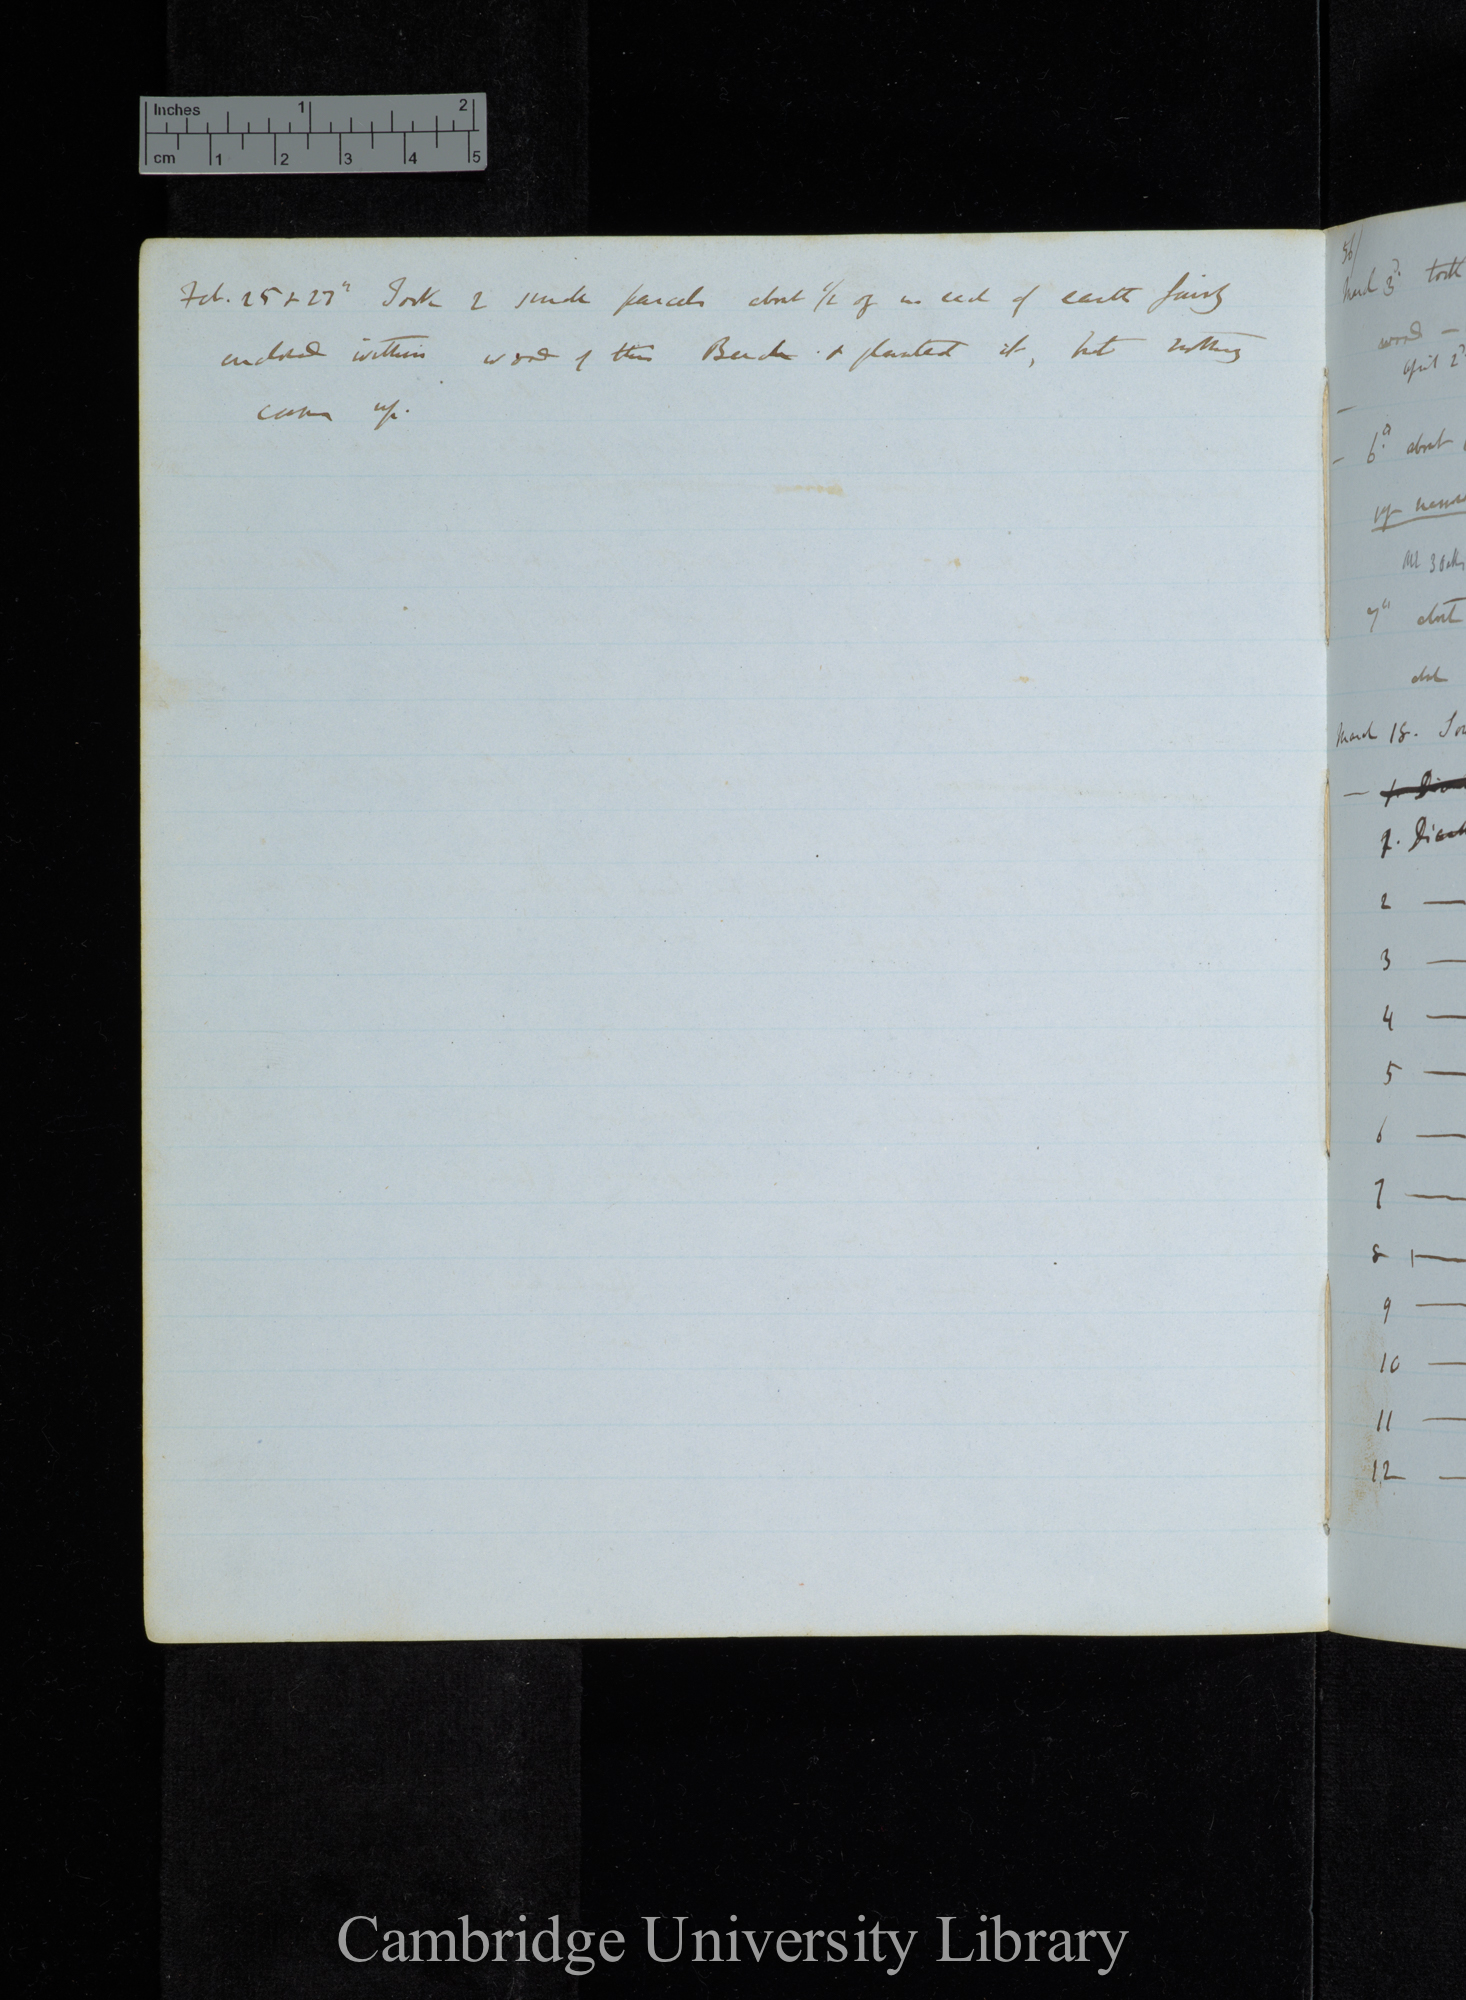 Inches 1 2
cm 1 2 3 4 5
Feb. 25 & 27th Took 2 small parcels about 1/2 oz in each of earth firmly
enclosed within wood of this Beech & planted it, but nothing
came up.
56/
March 3d. took
wood —
April 2d
— 6th about
7th about
March 18.
2 —
3 —
4 —
5 —
6 —
7 —
8 —
9 —
10 —
11 —
12 —
Cambridge University Library